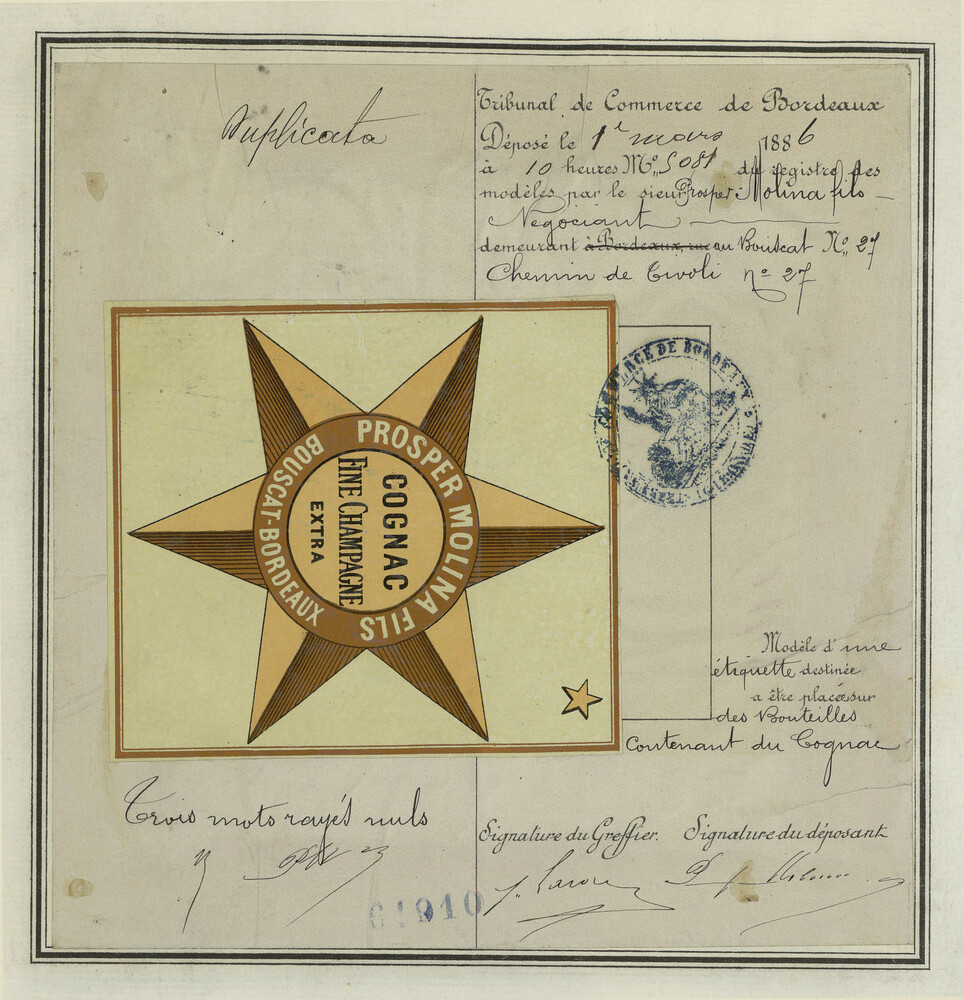 Duplicata
Tribunal de Commerce de Bordeaux
Déposé le 1er mars 1886
à 10 heures No 5081 du registre des
modèles par le sieur Prosper Molina fils
Négociant
demeurant à Bordeaux, rue au Bouscat No 27
Chemin de Tivoli no 27
PROSPER MOLINA FILS
BOUSCAT-BORDEAUX
COGNAC
FINE CHAMPAGNE
EXTRA
DE BORDEAUX
Modèle d'une
étiquette destinée
a être placée sur
des Bouteilles
Contenant du Cognac
Trois mots rayés nuls
Signature du Greffier. Signature du déposant
61910